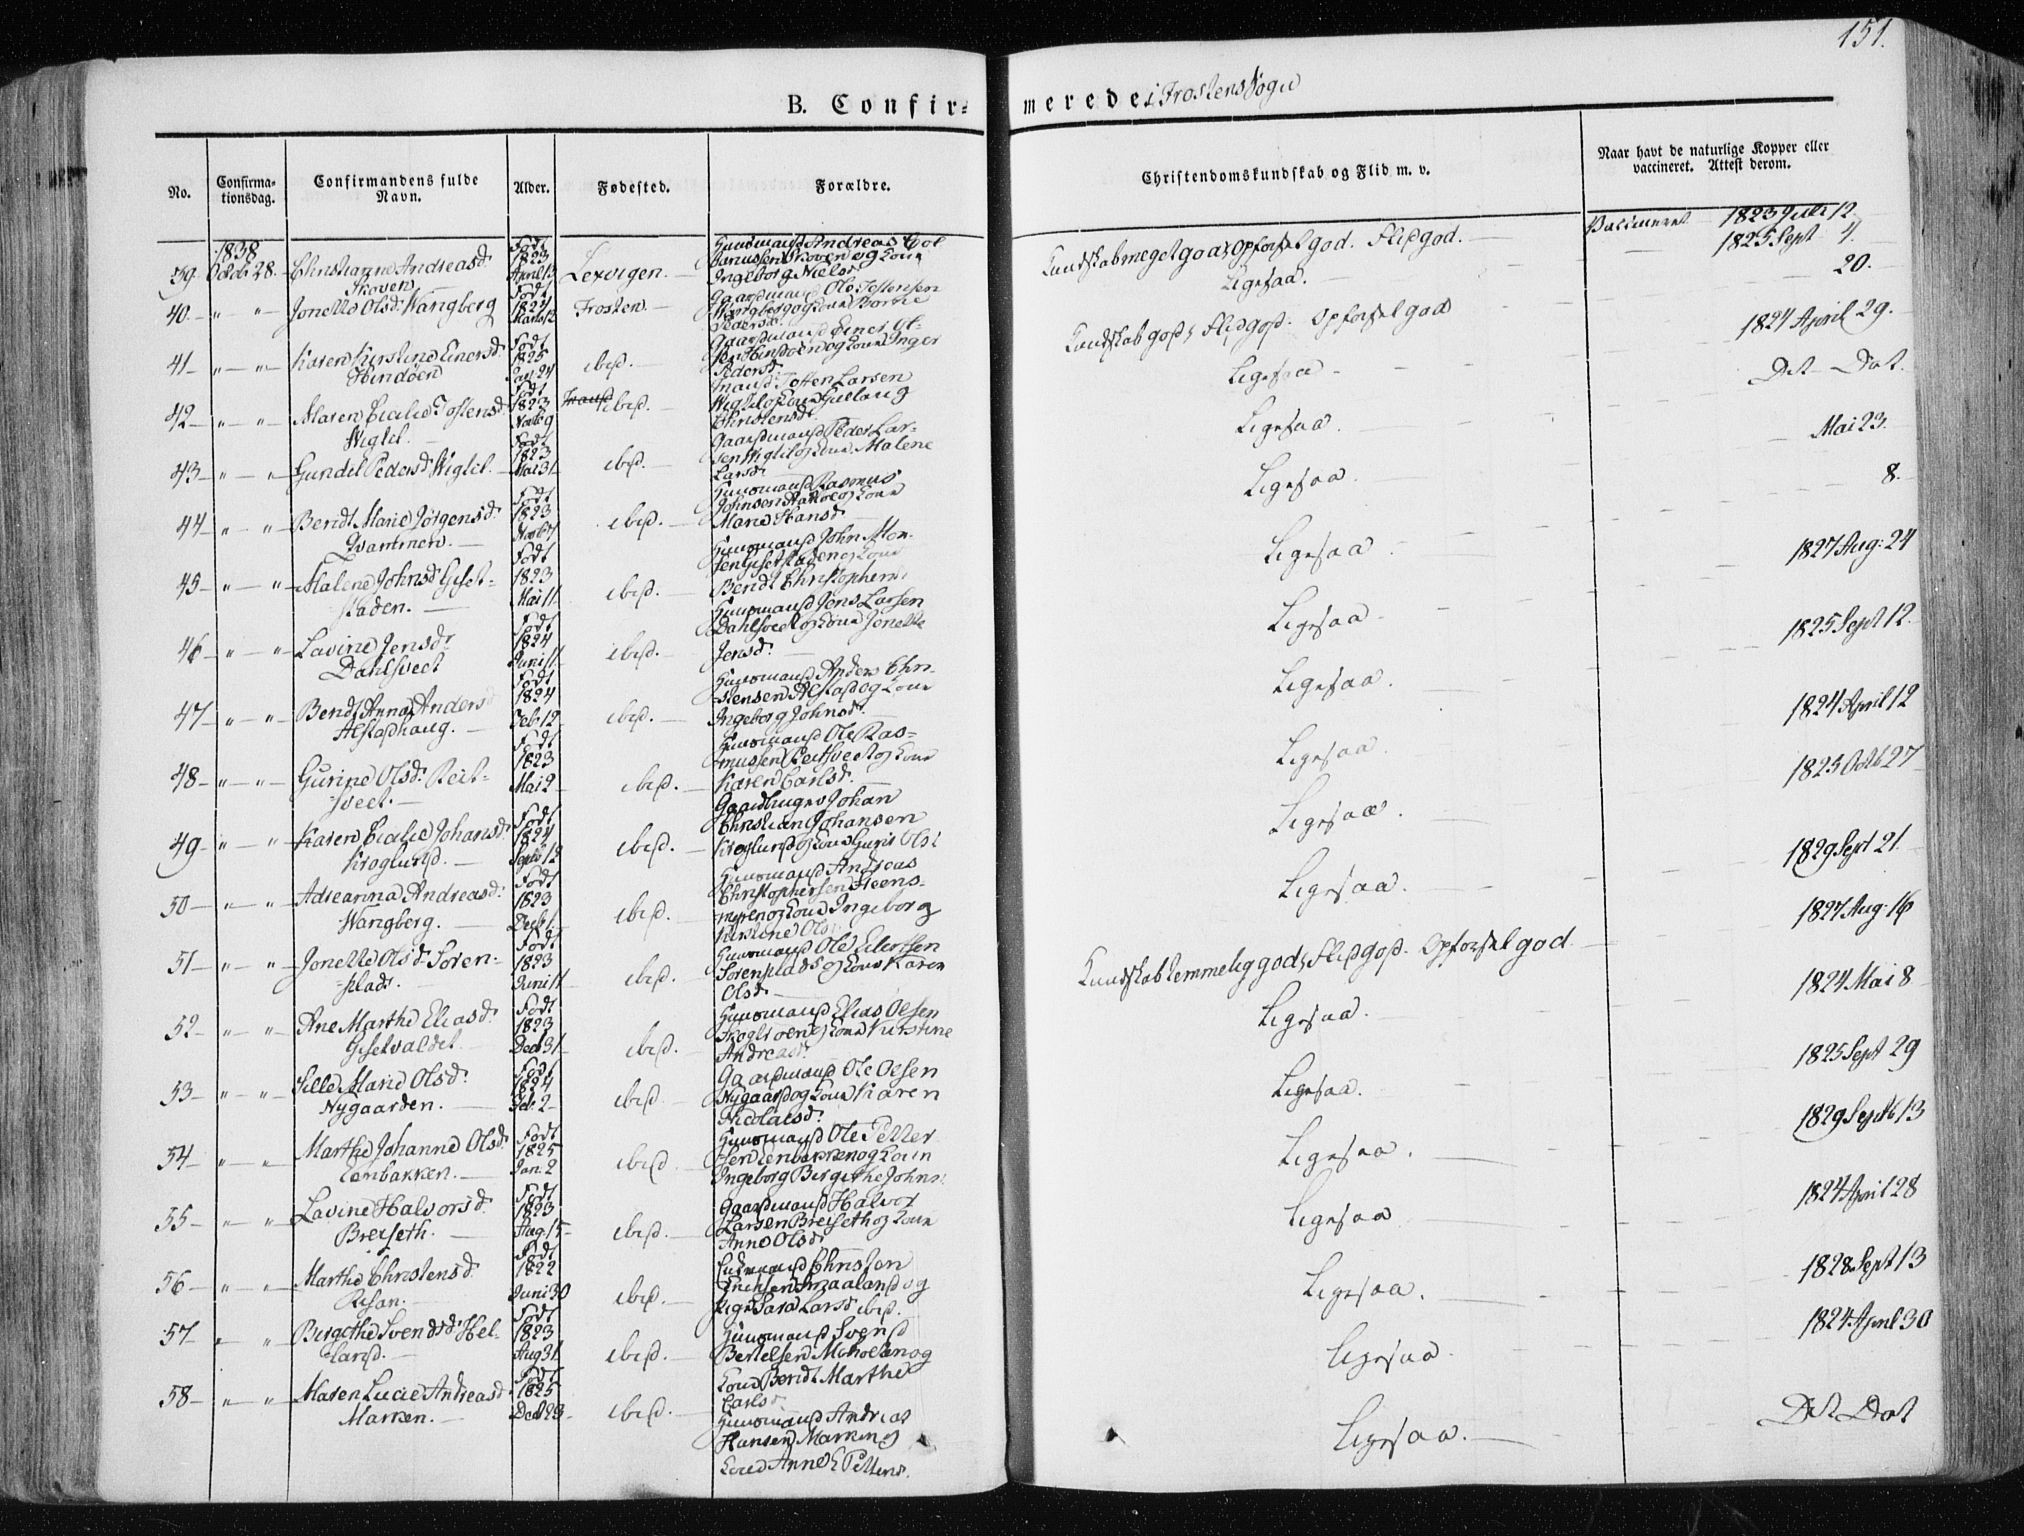 151.
B. Confir- merede i Frostens Sogn
No.
Confirma-
tionsdag.
Confirmandens fulde
Navn.
Alder.
Fødested.
Forældre.
Christendomskundskab og Flid m. v.
Naar havt de naturlige Kopper eller
vaccineret. Attest derom.
1838
39 Octob 28. Christianne Andreasd.
Skoven
Født
1823
April 13
Lexvigen.
Ingeborg Nielsd.
Kundskab meget god, Opførsel god. Flid god.
Vaccineret 1823 Juli 12
1825 Sept 4.
40 " " Jonette Olsd. Wangberg
Født
1824
Frosten.
Ligesaa.
20.
41 " " Karen Kirstine Einersd.
Hindöen
Født
1825
Jan 24
ibid.
Pedersd.
Kundskab god, Flid god. Opførsel god
1824 April 29.
42 " " Maren Cicilie Tostensd.
Wigtil
Født
1823
Novb 9
ibid.
Christensd.
Ligesaa
Det Dat.
43 " " Gundel Pedersd. Wigtil.
Født
1823
Mai 31
ibid.
Gaardmand Peder Lar-
sen Wigtil og Kone Malene
Larsd.
Ligesaa.
Mai 23.
44 " " Berdt Marie Jørgensd.
Født
1823
ibid.
Huusmand Rasmus
Marie Hansd.
Ligesaa.
8.
45 " " Malene Johnsd. Giset-
staden.
Født
1823
Mai 11
ibid.
Huusmand John Mon-
Berdt Christophersd.
Ligesaa
1827 Aug: 24
46 " " Lavine Jensd.
Dahlsveet
Født
1824
Juni 11
ibid.
Huusmand Jens Larsen
Dahlsveet og Kone Jonette
Jensd.
Ligesaa
1825 Sept 12.
47 " " Berdt Anna Anders
Alstadhaug.
Født
1824
Feb. 12
ibid.
Huusmand Anders Chri-
stensen Alstad og Kone
Ingeborg Johnsd.
Ligesaa.
1824 April 12
48 " " Gurine Olsd. Reit-
sveet.
Født
1823
Mai 2
ibid.
Huusmand Ole Ras-
mussen Reitsveet og Kone
Karen Carlsd.
Ligesaa
1825 Octb 27
49 " " Karen Cicilie Johansd.
Kroglund.
Født
1824
Septb 12
ibid.
Johan
Christian Johansen
Kroglund og Kone Guris Olsd
Ligesaa.
1829 Sept 21.
50 " " Adreanna Andreasd.
Wangberg.
Født
1823
Decb 1
ibid.
Huusmand Andreas
Christophersen Steens-
myren og Kone Ingeborg
Kirstine Olsd.
Ligesaa.
1827 Aug: 16
51 " " Jonette Olsd. Soren-
plads.
Født
1823
Juni 11
ibid.
Huusmand Ole Eilertsen
Sorenplads og Kone Karen
Olsd.
Kundskab temmelig god, Flid god. Opførsel god.
1824 Mai 8
52 " " Ane Marthe Eliasd.
Gisetvaldet.
Født
1823
Decb 31
ibid.
Huusmand Elias Olsen
og Kone Kirstine
Andreasd.
Ligesaa.
1825 Sept 29
53 " " Sille Marie Olsd.
Nygaarden.
Født
1824
Feb. 2
ibid.
Gaardmand Ole Olsen
Nygaard og Kone Karen
Nicolaisd.
Ligesaa.
1829 Septb 13
54 " " Marthe Johanne Olsd.
Lenbakken.
Født
1825
Jan. 2
ibid.
Huusmand Ole Petter
sen Lenbakken og Kone
Ingeborg Bergithe Johns.
Ligesaa.
1824 April 28
55 " " Lavine Halvorsd.
Breiseth.
Født
1823
Aug. 15
ibid.
Gaardmand Halvor
Larsen Breiseth og Kone
Anne Olsd.
Ligesaa
1828 Sept 13
56 " " Marthe Christensd.
Risan.
Født
1822
Juni 30
ibid.
Christen
Erichsen Smaaland og
Pige Sara Larsd. ibid.
Ligesaa.
1824 April 30
57 " " Birgithe Svendsd. Hel-
land.
Født
1823
Aug 31
ibid.
Huusmand Svend
Bertelsen Moholten og
Kone Berdt Marthe
Carlsd.
Ligesaa
58 " " Maren Lucie Andreasd.
Marken.
Født
1825
Decb 23
ibid.
Huusmand Andreas
Hansen Marken og
Kone Anne E Petters.
Ligesaa.
Det Dat